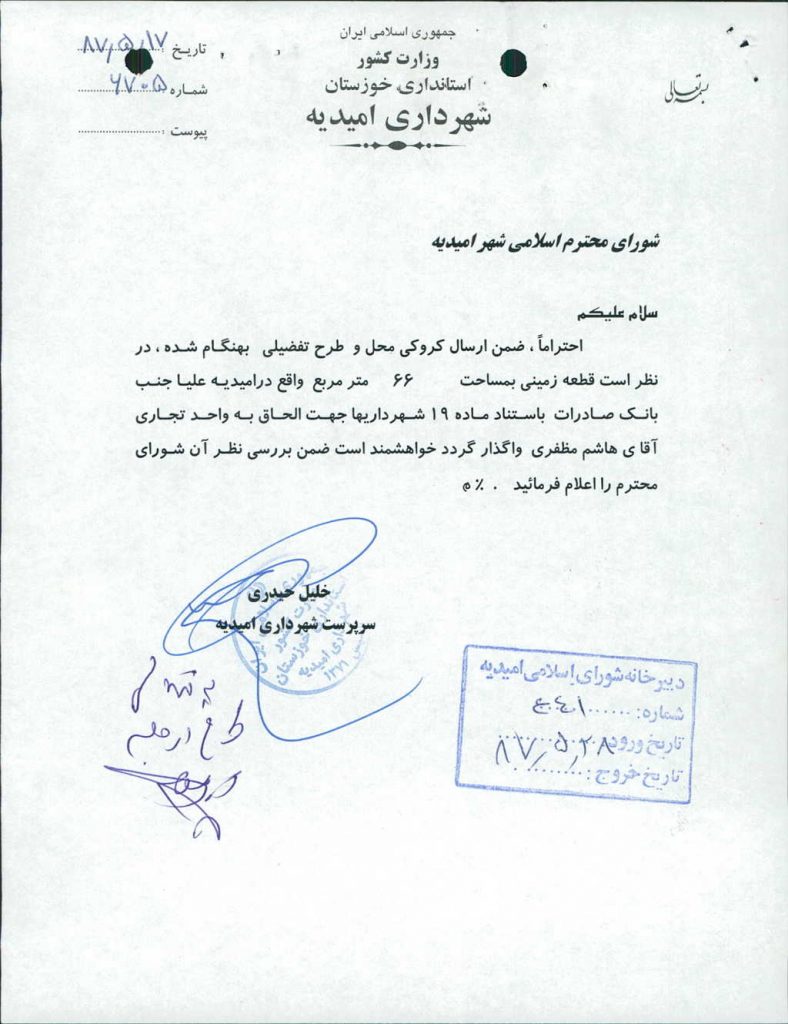 بسمه تعالی
جمهوری اسلامی ایران
وزارت کشور
استانداری خوزستان
شهرداری امیدیه
تاریخ : ۸۷/۵/۱۷
شماره ۶۷۰۵
پیوست :
شورای محترم اسلامی شهر امیدیه
سلام علیکم
احتراماً ، ضمن ارسال کروکی محل و طرح تفضیلی بهنگام شده ، در
نظر است قطعه زمینی بمساحت ۶۶ متر مربع واقع درامیدیه علیا جنب
بانک صادرات باستناد ماده ۱۹ شهرداریها جهت الحاق به واحد تجاری
آقا ی هاشم مظفری واگذار گردد خواهشمند است ضمن بررسی نظر آن شورای
محترم را اعلام فرمائید . ٪ م
خلیل حیدری
سرپرست شهرداری امیدیه
استانداری خوزستان
شهرداری امیدیه
دبیرخانه شورای اسلامی امیدیه
شماره:
تاریخ ورود ۸۷/۵/۲۸
تاریخ خروج :